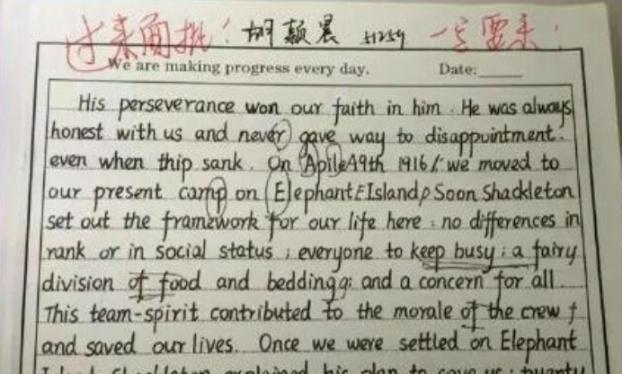 过来面批! 胡颖晨 51259 一定要来!
We are making progress every day. Date:
His perseverance won our faith in him. He was always
honest with us and never gave way to disappointment.
even when thip sank. On Apile 49th 1916 we moved to
our present camp on Elephant Island Soon Shackleton
set out the framework for our life here: no differences in
rank or in social status; everyone to keep busy; a fairy
division of food and bedding; and a concern for all.
This team-spirit contributed to the morale of the crew
and saved our lives. Once we were settled on Elephant
Island Shackleton explained his plan to save us: twenty